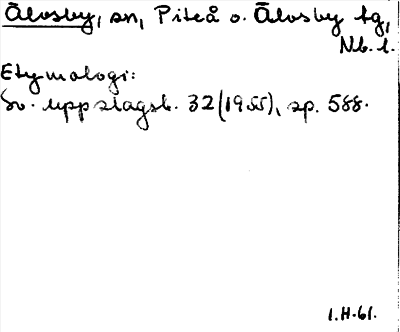 Älvsby, sn, Piteå o. Älvsby tg,
Nb. l.
Etymologi:
Sv. uppslagsb. 32 (1955), sp. 588.
1.H.61.